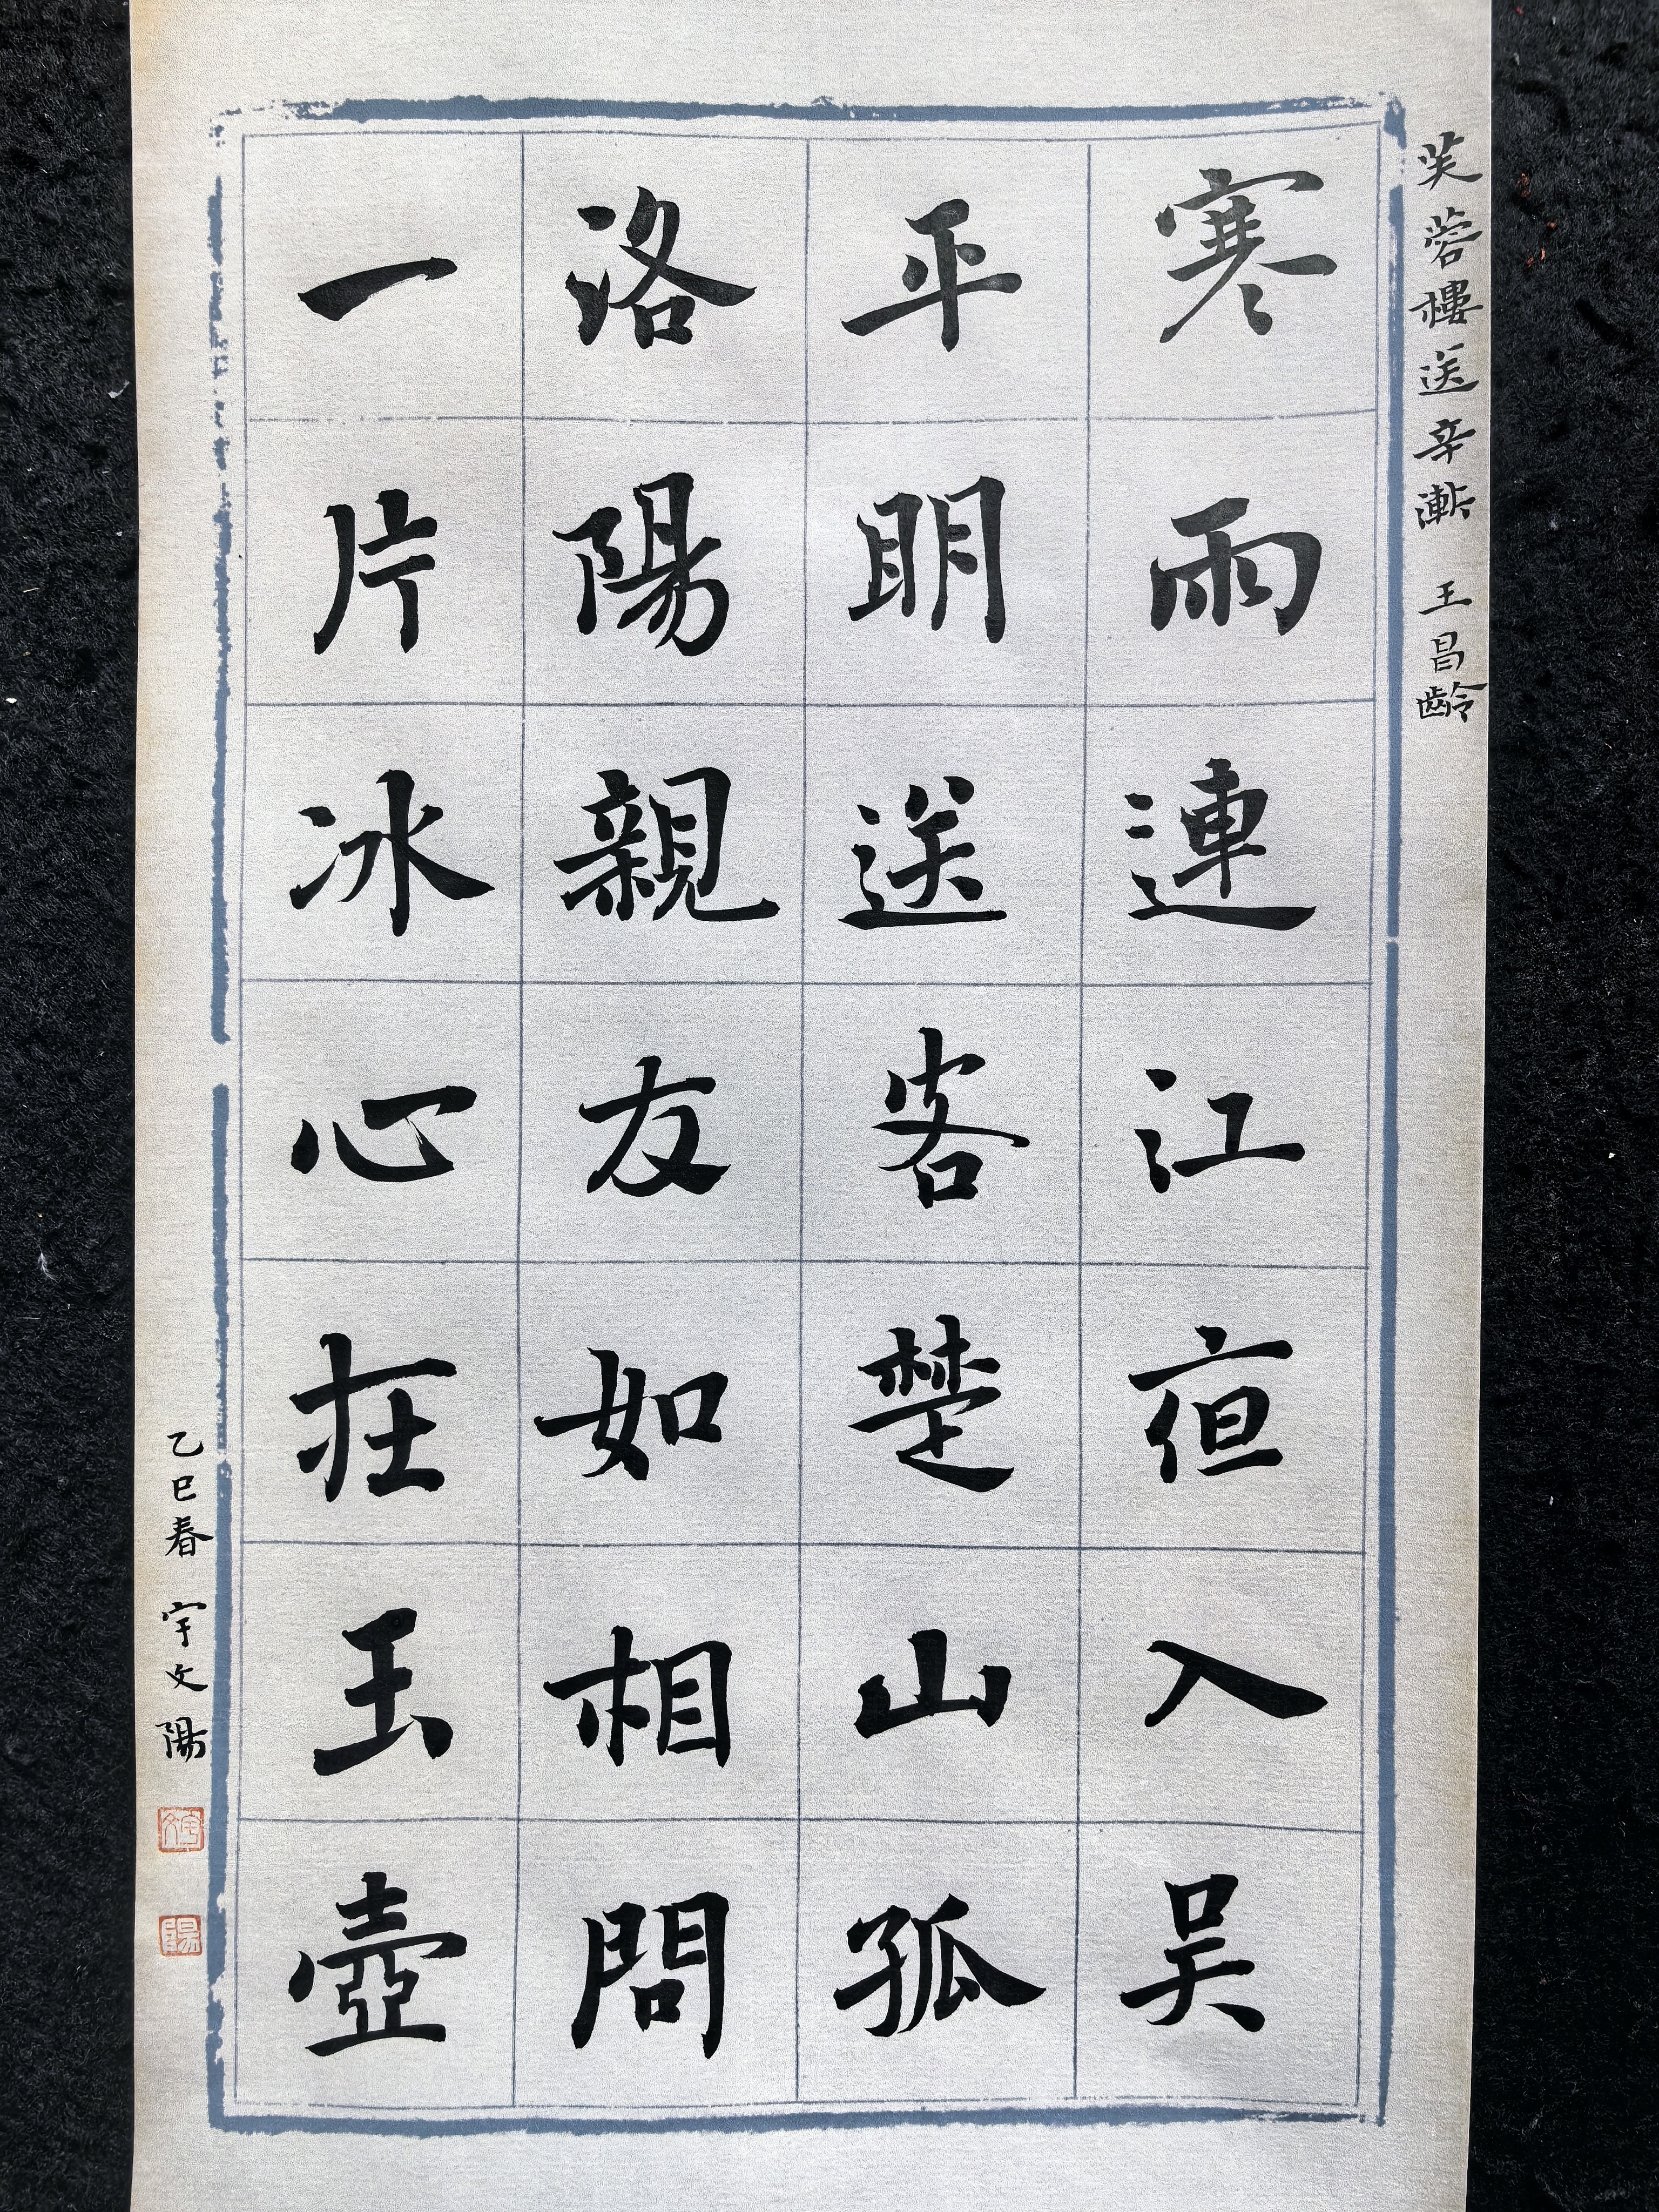 芙蓉樓送辛漸 王昌齡
寒雨連江夜入吴
平明送客楚山孤
洛陽親友如相問
一片冰心在玉壺
乙巳春 宇文陽